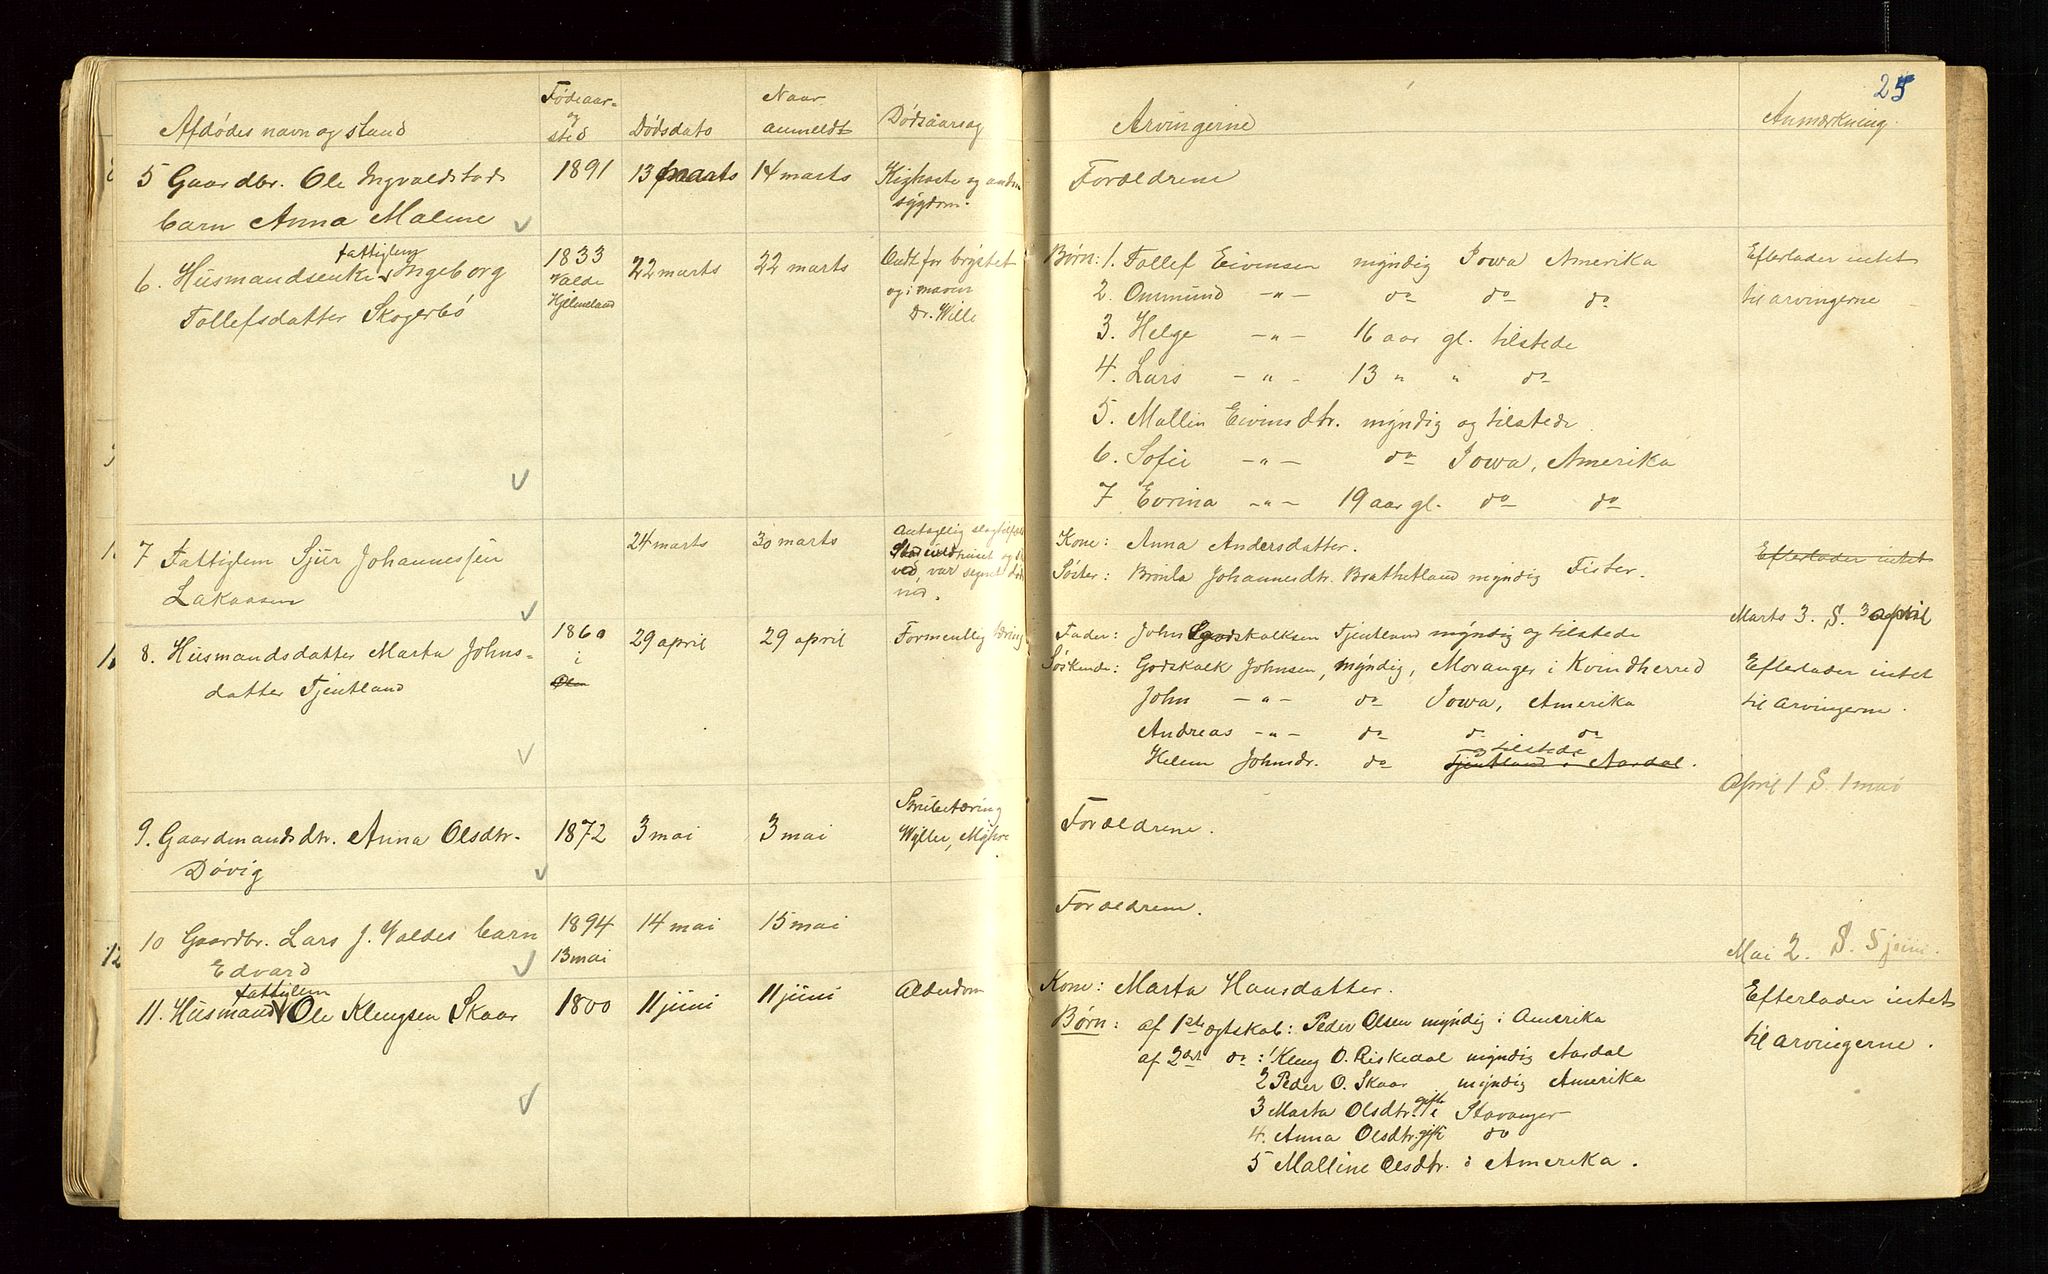 25
Afdødes navn og stand
Fødeaar-
og
sted
Dødsdato
Naar
anmeldt
Dødsaarsag
Arvingerne
Anmærkning.
5 Gaardbr. Ole Ingvaldstads
barn Anna Maline
1891
13 marts
14 marts
Kighoste og anden
sygdom.
Forældrene
6. Husmandsenke fattiglem Ingeborg
Tollefsdatter Skogerbö
1833
Valde
Hjelmeland
22 marts
22 marts
Ondt for brystet
og i maven
Dr. Wille
Børn: 1. Tollef Eivensen myndig Iowa Amerika
2. Ommund -"- do do do
3. Helge -"- 16 aar gl. tilstede
4. Lars -"- 13 " " do
5. Mallin Eivinsdtr. myndig og tilstede
6. Sofie -"- do Iowa, Amerika
7 Evrina -"- 19 aar gl. do do
Efterlader intet
til arvingerne
7 Fattiglem Sjur Johannessen
Lakaasen
24 marts
30 marts
Antagelig slagtilfælde
ved, var segnet død
ned.
Kone: Anna Andersdatter.
Søster: Brønla Johannesdtr. Brathetland myndig Fister.
Efterlader intet
Marts 3. S. 3 april
8. Husmandsdatter Marta Johns-
datter Tjentland
1860
i
Ølen
29 april
29 april
Formentlig tæring
Fader: John Godskalksen Tjentland myndig og tilstede
Søskende: Godskalk Johnsen, myndig, Moranger i Kvindherred
John -"- do Iowa, Amerika
Andreas -"- do do do
Helene Johnsdr. do og tilstede Tjentland i Aardal.
Efterlader intet
til arvingerne.
April 1 S. 1 mai
9. Gaardmandsdtr. Anna Olsdtr-
Døvig
1872
3 mai
3 mai
Strubetæring
Wyller, Myhre
Forældrene.
10 Gaardbr. Lars J. Valdes barn
Edvard
1894
13 mai
14 mai
15 mai
Forældrene.
Mai 2. S. 5 juni.
11. Husmand fattiglem Ole Klengsen Skaar
1800
11 juni
11 juni
Alderdom
Kone: Marta Hansdatter.
Børn: af 1ste ægtskab: Peder Olsen myndig i Amerika
af 2det do: 1 Kleng O. Riskedal myndig Aardal
2 Peder O. Skaar myndig Amerika
3 Marta Olsdtr. gift i Stavanger
4. Anna Olsdtr. gift do
5 Malline Olsdtr. i Amerika.
Efterlader intet
til arvingerne.